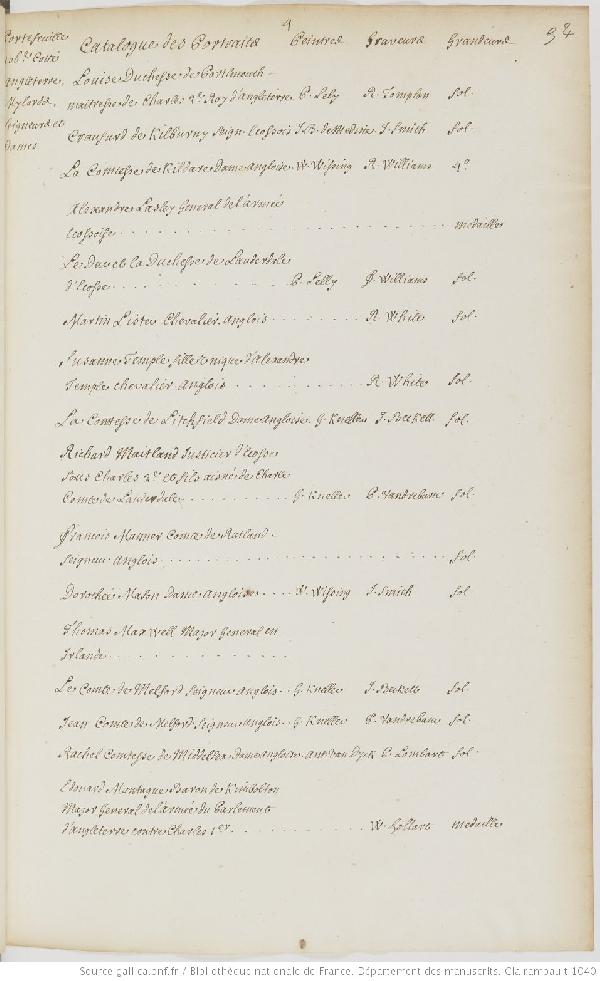 9
92
Portefeuille
Catalogue des Portraits Peintres Graveurs Grandeurs
Angleterre,
Mylords,
Seigneurs et
Dames
Louise Duchesse de Portsmouth
maitresse de Charles 2d. Roy d'Angleterre P. Lely R. Tompson fol.
Craufurd de Kilburny Seign. Ecossois J.B. de Medina J. Smith fol.
La Comtesse de Kildare Dame Angloise W. Wissing R. Williams 4o
Alexandre Lesley General de l'armée
Ecossoise medaille
Le Duc et la Duchesse de Lauderdale
d'Ecosse P. Lelly R. Williams fol.
Martin Lister Chevalier Anglois R. White fol.
Susanne Temple fille unique d'Alexandre
Temple chevalier Anglois R. White fol.
La Comtesse de Litchfield Dame Angloise G. Kneller J. Beckett fol.
Richard Maitland Justicier d'Ecosse
sous Charles 2d. et fils aisné de Charle
Comte de Lauderdale G. Kneller P. Vandrebanc fol.
François Manner Comte de Rutland
Seigneur Anglois fol.
Dorothée Mason Dame Angloise W. Wissing J. Smith fol
Thomas Maxwell Major General en
Irlande
Le Comte de Melford Seigneur Anglois G. Kneller J. Beckett fol.
Jean Comte de Melford Seigneur Anglois G. Kneller P. Vandrebanc fol.
Rachel Comtesse de Middelsex Dame Angloise Ant. Van Dyck P. Lombart fol.
Edouard Montague Baron de Kimbolton
Major General de l'armée du Parlement
d'Angleterre contre Charles 1er W. Hollart medaille
Source gallica.bnf.fr / Bibliothèque nationale de France. Département des manuscrits. Clairambault 1040